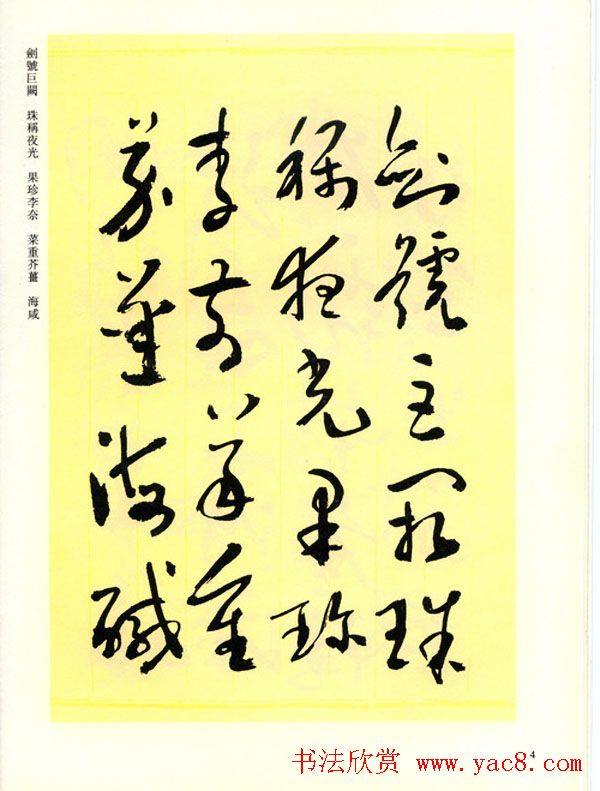 劍號巨闕珠
稱夜光果珍
李柰菜重
芥薑海鹹
劍號巨闕 珠稱夜光 果珍李奈 菜重芥薑 海咸
4
书法欣赏 www.yac8.com